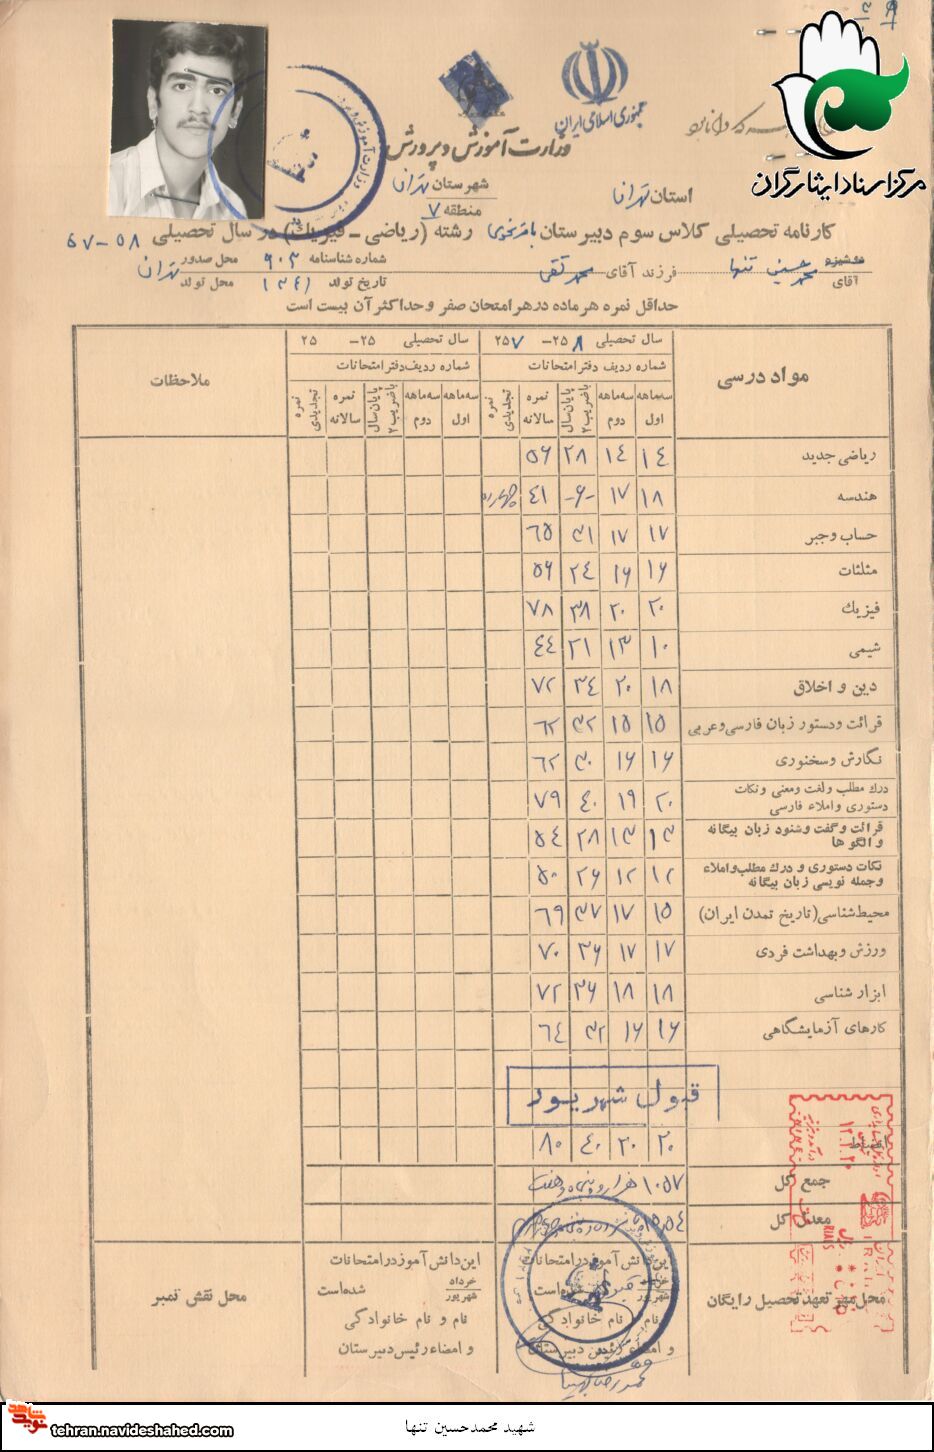 جمهوری اسلامی ایران
وزارت آموزش و پرورش
مرکز اسناد ایثارگران
استان تهران
شهرستان تهران
منطقه ۷
کارنامه تحصیلی کلاس سوم دبیرستان رشته (ریاضی - فیزیک) در سال تحصیلی ۵۸-۵۷
دوشیزه
آقای محمد حسین تنها فرزند آقای محمد تقی شماره شناسنامه ۹۰۳ محل صدور تهران
تاریخ تولد ۱۳۴۱ محل تولد
حداقل نمره هر ماده در هر امتحان صفر و حداکثر آن بیست است
مواد درسی سال تحصیلی ۲۵۸ - ۲۵۷ سال تحصیلی ۲۵ - ۲۵ ملاحظات
شماره ردیف دفتر امتحانات شماره ردیف دفتر امتحانات
سه‌ماهه اول سه‌ماهه دوم پایان سال با ضریب ۲ نمره سالانه نمره تجدیدی سه‌ماهه اول سه‌ماهه دوم پایان سال با ضریب ۲ نمره سالانه نمره تجدیدی
ریاضی جدید ۱۴ ۱۴ ۲۸ ۵۶
هندسه ۱۸ ۱۷ -۶- ۴۱ چهارده
حساب و جبر ۱۷ ۱۷ ۳۱ ۶۵
مثلثات ۱۶ ۱۶ ۲۴ ۵۶
فیزیک ۲۰ ۲۰ ۳۸ ۷۸
شیمی ۱۰ ۱۳ ۲۱ ۴۴
دین و اخلاق ۱۸ ۲۰ ۳۴ ۷۲
قرائت و دستور زبان فارسی و عربی ۱۵ ۱۵ ۳۲ ۶۲
نگارش و سخنوری ۱۶ ۱۶ ۳۰ ۶۲
درک مطلب و لغت و معنی و نکات دستوری و املاء فارسی ۲۰ ۱۹ ۴۰ ۷۹
قرائت و گفت و شنود زبان بیگانه و الگو ها ۱۳ ۱۳ ۲۸ ۵۴
نکات دستوری و درک مطلب و املاء و جمله نویسی زبان بیگانه ۱۲ ۱۲ ۲۶ ۵۰
محیط شناسی (تاریخ تمدن ایران) ۱۵ ۱۷ ۳۷ ۶۹
ورزش و بهداشت فردی ۱۷ ۱۷ ۳۶ ۷۰
ابزار شناسی ۱۸ ۱۸ ۳۶ ۷۲
کارهای آزمایشگاهی ۱۶ ۱۶ ۳۲ ۶۴
قبول شهریور
انضباط ۲۰ ۲۰ ۴۰ ۸۰
جمع کل ۱۰۵۷ هزار و پنجاه و هفت
معدل کل ۱۵٫۵۴
محل مهر تعهد تحصیل رایگان
این دانش آموز در امتحانات خرداد شهریور شده است
نام و نام خانوادگی
و امضاء رئیس دبیرستان
این دانش آموز در امتحانات خرداد شهریور شده است
نام و نام خانوادگی
و امضاء رئیس دبیرستان
محل نقش تمبر
شهید محمدحسین تنها
tehran.navideshahed.com